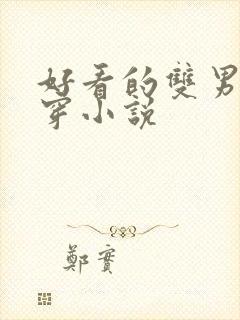 好看的雙男
穿小說
鄭實